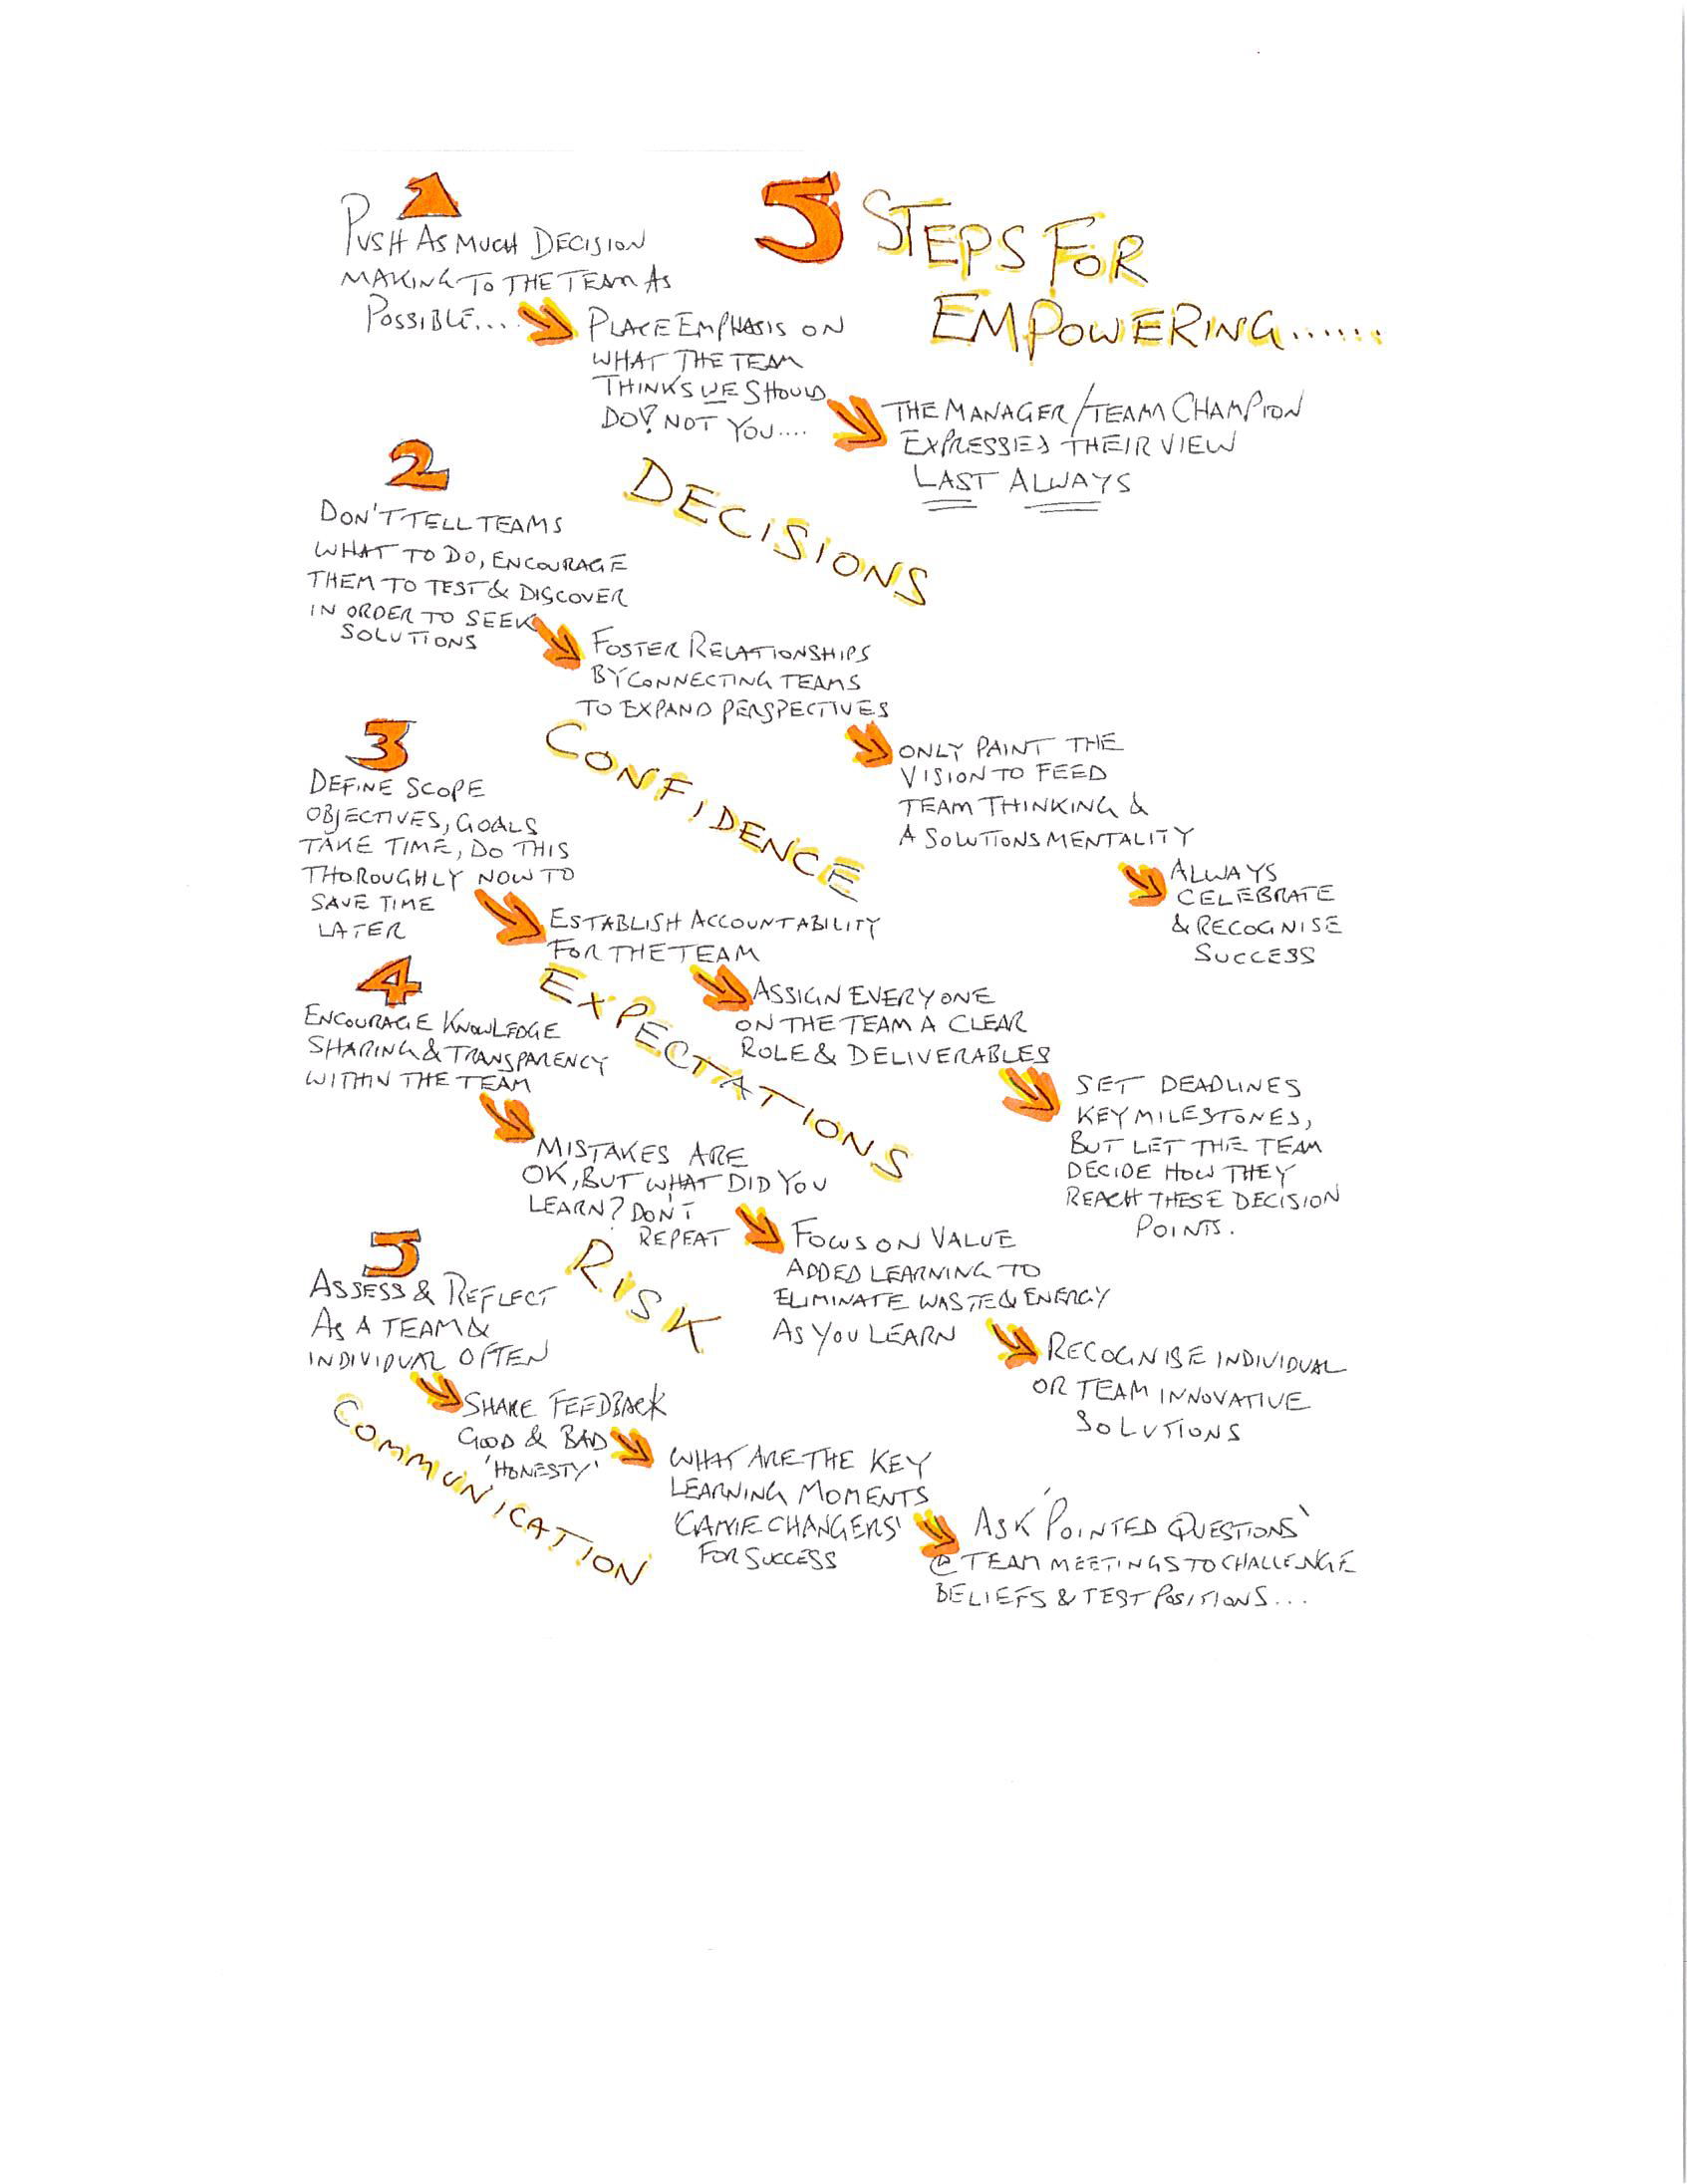 5 STEPS FOR
EMPOWERING......
1
PUSH AS MUCH DECISION
MAKING TO THE TEAM AS
POSSIBLE....
PLACE EMPHASIS ON
WHAT THE TEAM
THINKS WE SHOULD
DO? NOT YOU....
THE MANAGER/TEAM CHAMPION
EXPRESSES THEIR VIEW
LAST ALWAYS
DECISIONS
2
DON'T TELL TEAMS
WHAT TO DO, ENCOURAGE
THEM TO TEST & DISCOVER
IN ORDER TO SEEK
SOLUTIONS
FOSTER RELATIONSHIPS
BY CONNECTING TEAMS
TO EXPAND PERSPECTIVES
ONLY PAINT THE
VISION TO FEED
TEAM THINKING &
A SOLUTIONS MENTALITY
ALWAYS
CELEBRATE
& RECOGNISE
SUCCESS
CONFIDENCE
3
DEFINE SCOPE
OBJECTIVES, GOALS
TAKE TIME, DO THIS
THOROUGHLY NOW TO
SAVE TIME
LATER
ESTABLISH ACCOUNTABILITY
FOR THE TEAM
ASSIGN EVERYONE
ON THE TEAM A CLEAR
ROLE & DELIVERABLES
SET DEADLINES
KEY MILESTONES,
BUT LET THE TEAM
DECIDE HOW THEY
REACH THESE DECISION
POINTS.
EXPECTATIONS
4
ENCOURAGE KNOWLEDGE
SHARING & TRANSPARENCY
WITHIN THE TEAM
MISTAKES ARE
OK, BUT WHAT DID YOU
LEARN? DON'T
REPEAT
FOCUS ON VALUE
ADDED LEARNING TO
ELIMINATE WASTE & ENERGY
AS YOU LEARN
RECOGNISE INDIVIDUAL
OR TEAM INNOVATIVE
SOLUTIONS
RISK
5
ASSESS & REFLECT
AS A TEAM &
INDIVIDUAL OFTEN
SHARE FEEDBACK
GOOD & BAD
'HONESTY'
WHAT ARE THE KEY
LEARNING MOMENTS
'GAME CHANGERS'
FOR SUCCESS
ASK 'POINTED QUESTIONS'
@ TEAM MEETINGS TO CHALLENGE
BELIEFS & TEST POSITIONS...
COMMUNICATION